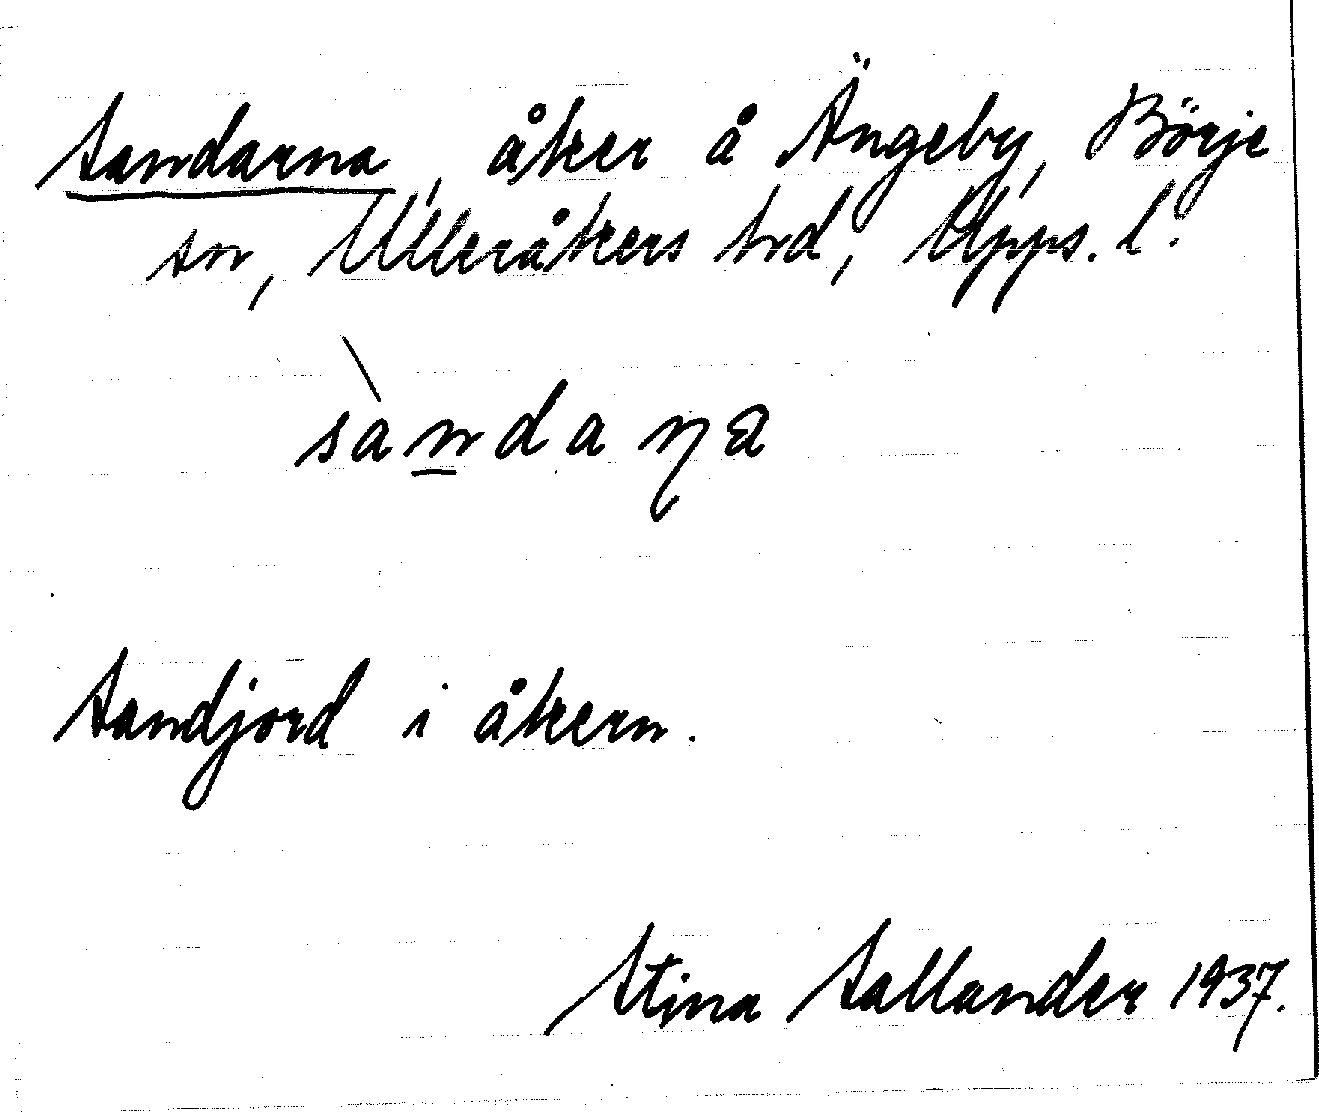 Sandarna, åker å Ängeby, Börje
sn, Ulleråkers hd, Upps. l.
sàn̲daṇa
Sandjord i åkern.
Stina Sallander 1937.